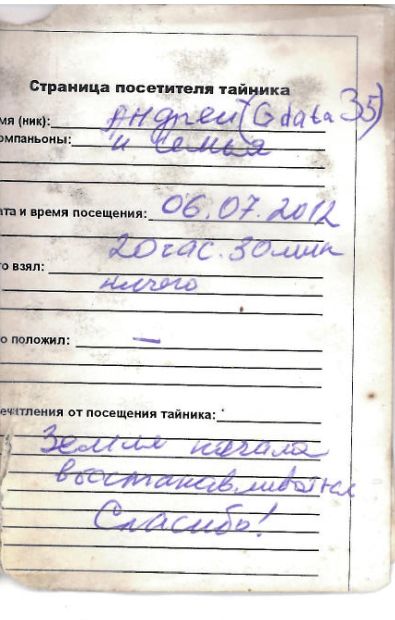 Страница посетителя тайника
мя (ник): Андрей (Gdata 35)
омпаньоны: и семья
ата и время посещения: 06.07.2012
20 час. 30 мин
то взял:
ничего
о положил: —
ечатления от посещения тайника:
Земля начала
восстанавливаться
Спасибо!